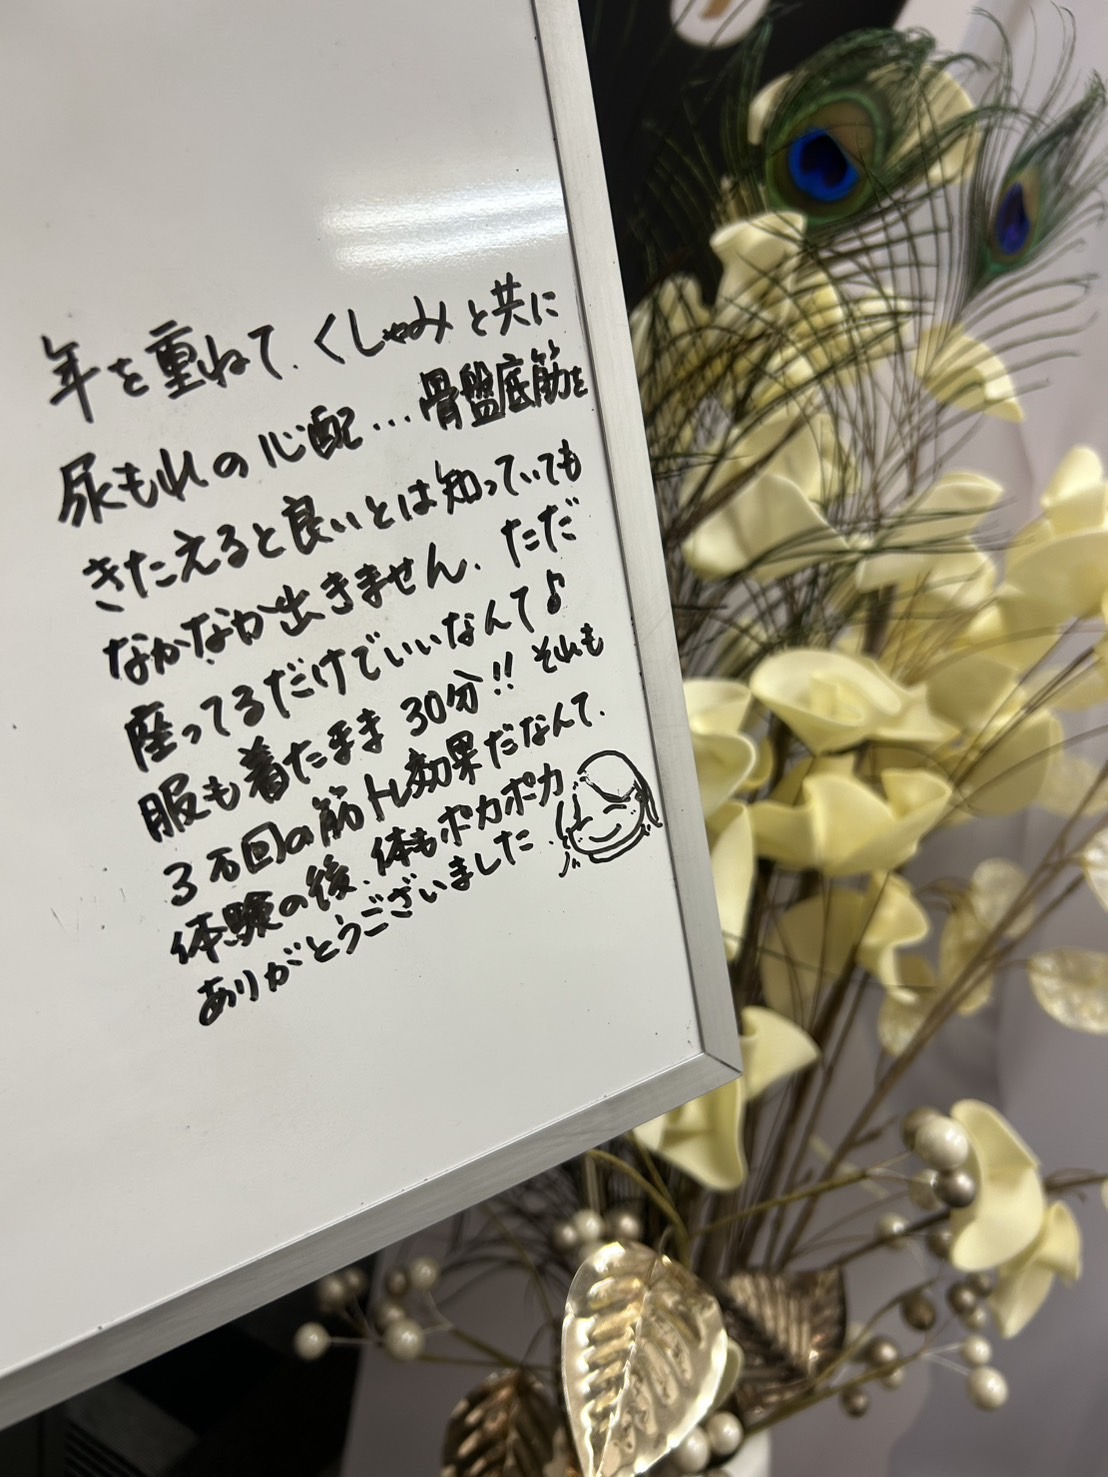 年を重ねて、くしゃみと共に
尿もれの心配…骨盤底筋を
きたえると良いとは知っていても
なかなか出きません、ただ
座ってるだけでいいなんて♪
服も着たまま30分!! それも
3万回の筋トレ効果だなんて、
体験の後、体もポカポカ
ありがとうございました